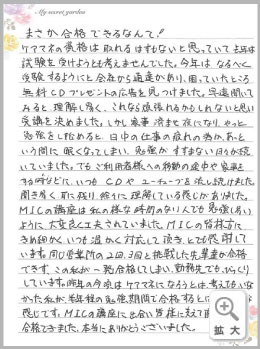 My secret garden
まさか合格できるなんて!
ケアマネの資格は取れるはずもないと思っていて去年は
試験を受けようとも考えませんでした。今年は なるべく
受験するようにと会社から通達があり、困っていたところ
無料CDプレゼントの広告を見つけました。早速聞いて
みると、理解し易く、これなら頑張れるかもしれないと思い
受講を決めました。しかし家事 済ませ夜になり、やっと
勉強をし始めると 日中の仕事の疲れの為か、あっと
いう間に 眠くなってしまい、勉強が すすまない日々が続
いていました。でもご利用者様への移動の途中や家事を
する時などに、いつも CDや ユーチューブを 流し続けました。
聞き易く 耳に残り、自然に 理解している感じがありました。
MICの講座は 私の様な時間のない人でも 勉強し易い
ように 大変良く工夫されていました。MICの皆様方に
きめ細かく いつも 温かく対応して 頂き、とても感謝して
います。同じ営業所の2回、3回と挑戦した先輩が合格
できず、この私が 一発合格してしまい、勤務先でも、びっくり
しています。昨年の今頃は ケアマネになろうとは 考えもしな
かった私が、半年程の勉強期間で合格するとは
感じです。MICの講座に出会い 皆様に支えて頂き
合格できました。本当にありがとうございました。
拡大